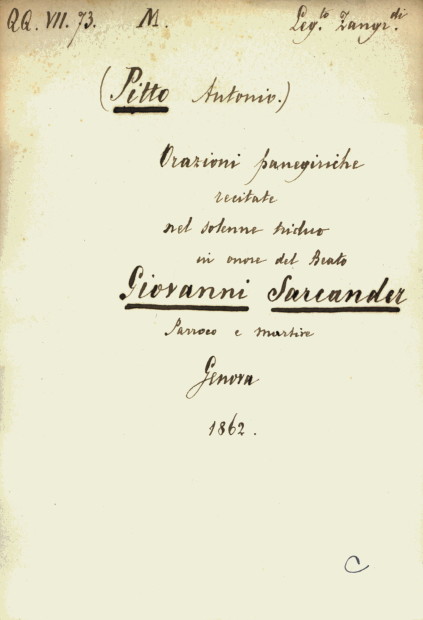 QQ. VII. 73. M. Leg.to Zangr.di
(Pitto Antonio.)
Orazioni panegiriche
recitate
nel solenne triduo
in onore del Beato
Giovanni Sarcander
Parroco e martire
Genova
1862.
C